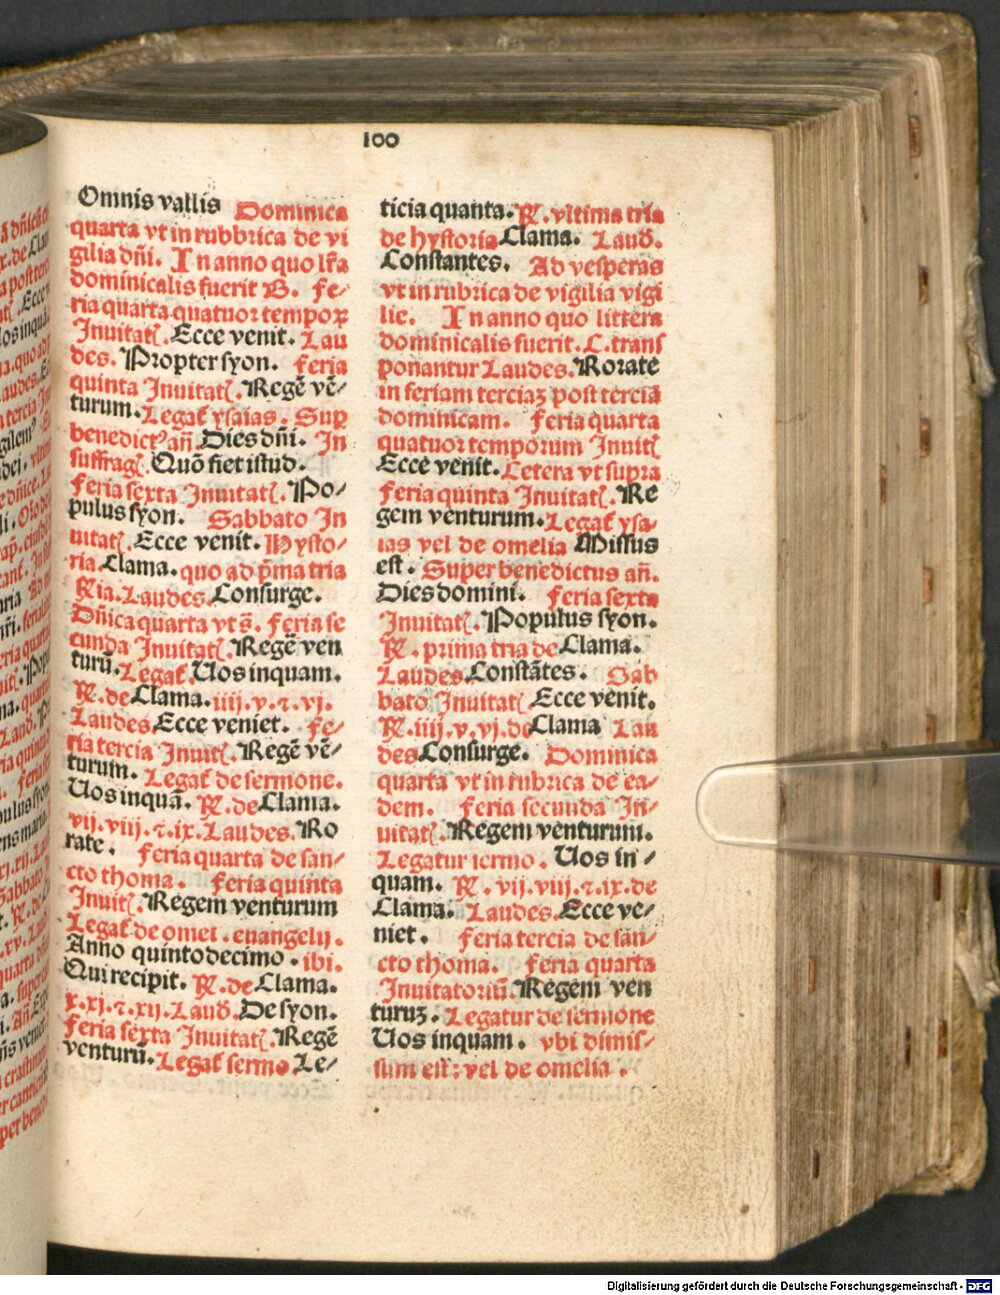 100
Omnis vallis Dominica
quarta vt in rubbrica de vi
gilia dñi. In anno quo lr̃a
dominicalis fuerit B. Fe⸗
ria quarta quatuor tempoꝝ
Inuitat. Ecce venit. Lau
des. Propter syon. Feria
quinta Inuitat. Regē vē⸗
turum. Legat ysaias. Sup
benedictꝰ añ Dies dñi. In
suffrag. Quō fiet istud.
Feria sexta Inuitat. Po⸗
pulus syon. Sabbato In
uitat. Ecce venit. Hysto⸗
ria. Clama. quo ad p̄ma tria
R̄ia. Laudes. Consurge.
Dñica quarta vt s̄. Feria se
cunda Inuitat. Regē ven
turū. Legat. Uos inquam.
R̄. de Clama. iiij. v. ⁊. vj.
Laudes Ecce veniet. Fe⸗
ria tercia Inuit. Regē vē⸗
turum. Legat de sermone.
Uos inquā. R̄. de Clama.
vij. viij. ⁊. ix. Laudes. Ro
rate. Feria quarta de san⸗
cto thoma. Feria quinta
Inuit. Regem venturum
Legat de omel. euangelij.
Anno quintodecimo. ibi.
Qui recipit. R̄. de Clama.
x. xj. ⁊. xij. Laud. De syon.
Feria sexta Inuitat. Regē
venturū. Legat sermo Le⸗
ticia quanta. R̄. vltima tria
de hystoria Clama. Laud.
Constantes. Ad vesperas
vt in rubrica de vigilia vigi
lie. In anno quo littera
dominicalis fuerit. C. trans
ponantur Laudes. Rorate
in feriam terciaꝫ post terciā
dominicam. Feria quarta
quatuor temporum Inuit
Ecce venit. Cetera vt supra
Feria quinta Inuitat. Re
gem venturum. Legat ysa⸗
ias vel de omelia Missus
est. Super benedictus añ.
Dies domini. Feria sexta
Inuitat. Populus syon.
R̄. prima tria de Clama.
Laudes. Constātes. Sab
bato Inuitat Ecce venit.
R̄. iiij. v. vj. de Clama Lau
des Consurge. Dominica
quarta vt in rubrica de ea⸗
dem. Feria secunda In⸗
uitat. Regem venturum.
Legatur sermo. Uos in⸗
quam. R̄. vij. viij. ⁊. ix. de
Clama. Laudes. Ecce ve⸗
niet. Feria tercia de san⸗
cto thoma. Feria quarta
Inuitatoriū. Regem ven
turuꝫ. Legatur de sermone
Uos inquam. vbi dimis⸗
sum est: vel de omelia.
Digitalisierung gefördert durch die Deutsche Forschungsgemeinschaft - DFG